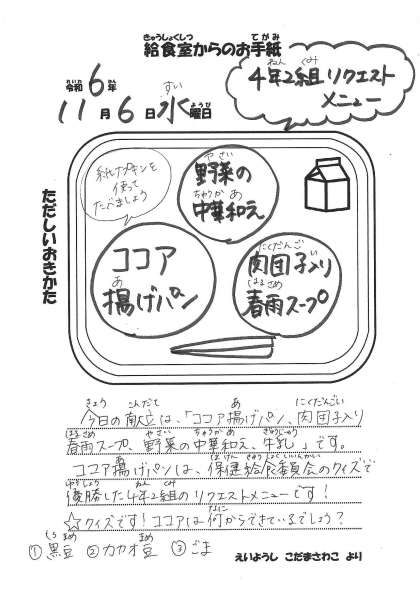 きゅうしょくしつ てがみ
給食室からのお手紙
れいわ ねん
令和6年
11月6日水曜日
すい ようび
ねん くみ
4年2組リクエスト
メニュー
ただしいおきかた
紙ナプキンを
使って
たべましょう
やさい
野菜の
ちゅうか あ
中華和え
ココア
あ
揚げパン
にくだんご い
肉団子入り
はるさめ
春雨スープ
きょう こんだて あ にくだんごい
今日の献立は、「ココア揚げパン、肉団子入り
はるさめ やさい ちゅうか あ ぎゅうにゅう
春雨スープ、野菜の中華和え、牛乳」です。
あ ほけんきゅうしょくいいんかい
ココア揚げパンは、保健給食委員会のクイズで
ゆうしょう ねん くみ
優勝した4年2組のリクエストメニューです!
なに
☆クイズです!ココアは何からできているでしょう?
くろまめ まめ
①黒豆 ②カカオ豆 ③ごま
えいようし こだまさわこ より